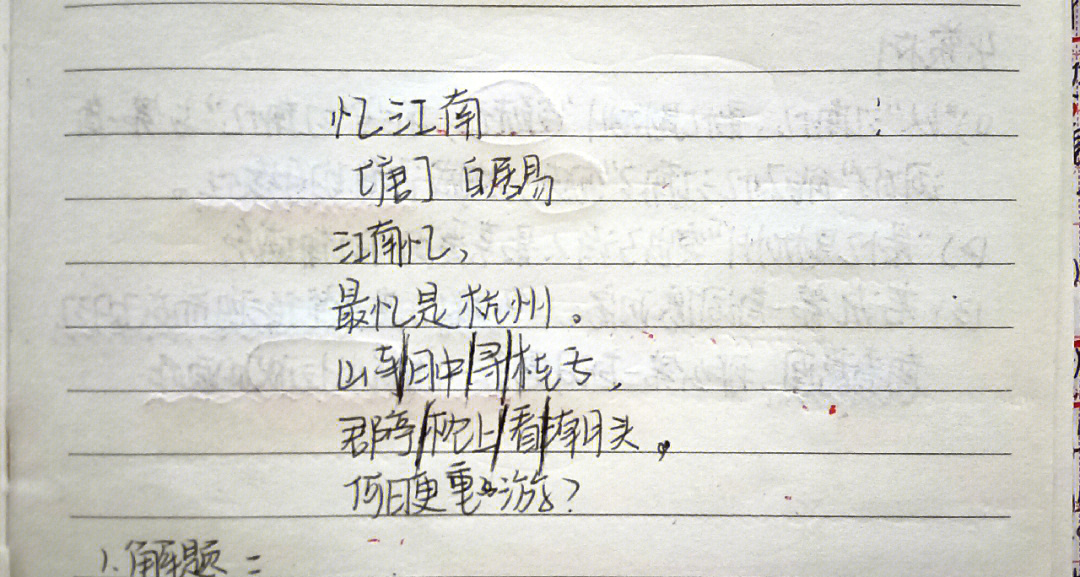 忆江南
[唐] 白居易
江南忆，
最忆是杭州。
山寺/月中/寻/桂子，
郡亭/枕上/看/潮头。
何日更重游？
1.解题：